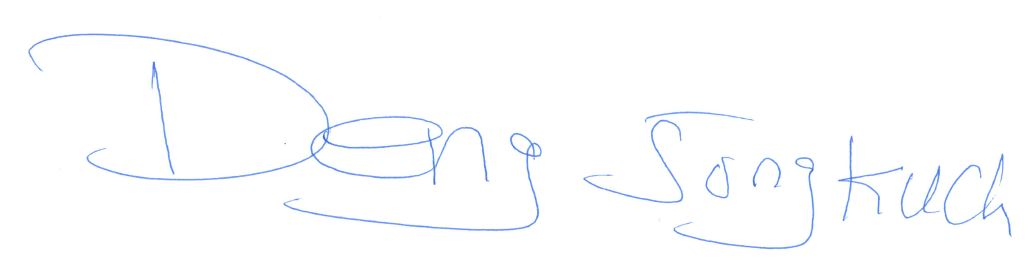 Deng Songkuch